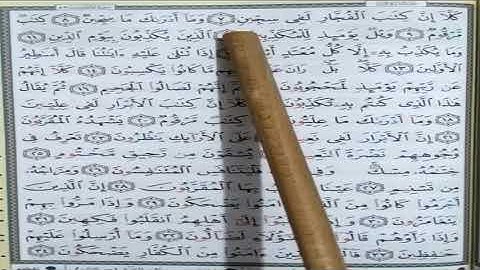 كَلَّا إِنَّ كِتَٰبَ ٱلْفُجَّارِ لَفِى سِجِّينٍ ٧ وَمَآ أَدْرَىٰكَ مَا سِجِّينٌ ٨ كِتَٰبٌ
مَّرْقُومٌ ٩ وَيْلٌ يَوْمَئِذٍ لِّلْمُكَذِّبِينَ ١٠ ٱلَّذِينَ يُكَذِّبُونَ بِيَوْمِ ٱلدِّينِ ١١
وَمَا يُكَذِّبُ بِهِۦٓ إِلَّا كُلُّ مُعْتَدٍ إِذَا تُتْلَىٰ عَلَيْهِ ءَايَٰتُنَا قَالَ أَسَٰطِيرُ
ٱلْأَوَّلِينَ ١٣ كَلَّا بَلْ رَانَ عَلَىٰ مَّا كَانُوا۟ يَكْسِبُونَ ١٤ كَلَّآ إِنَّهُمْ
عَن رَّبِّهِمْ يَوْمَئِذٍ لَّمَحْجُوبُونَ إِنَّهُمْ لَصَالُوا۟ ٱلْجَحِيمِ ١٦ ثُمَّ يُقَالُ
هَٰذَا ٱلَّذِى كُنتُم بِهِۦ تُكَذِّبُونَ كَلَّآ إِنَّ كِتَٰبَ ٱلْأَبْرَارِ لَفِى عِلِّيِّينَ
١٨ وَمَآ أَدْرَىٰكَ مَا عِلِّيُّونَ مَّرْقُومٌ ٢٠ يَشْهَدُهُ ٱلْمُقَرَّبُونَ
٢١ إِنَّ ٱلْأَبْرَارَ لَفِى عَلَى ٱلْأَرَآئِكِ يَنظُرُونَ ٢٣ تَعْرِفُ فِى
وُجُوهِهِمْ نَضْرَةَ ٱلنَّعِيمِ يُسْقَوْنَ مِن رَّحِيقٍ مَّخْتُومٍ ٢٥
خِتَٰمُهُۥ مِسْكٌ وَفِى فَلْيَتَنَافَسِ ٱلْمُتَنَٰفِسُونَ ٢٦ وَمِزَاجُهُۥ
مِن تَسْنِيمٍ ٢٧ عَيْنًا بِهَا ٱلْمُقَرَّبُونَ ٢٨ إِنَّ ٱلَّذِينَ
أَجْرَمُوا۟ كَانُوا۟ مِنَ ءَامَنُوا۟ يَضْحَكُونَ ٢٩ وَإِذَا مَرُّوا۟ بِهِمْ
يَتَغَامَزُونَ ٣٠ وَإِذَا إِلَىٰٓ أَهْلِهِمُ ٱنقَلَبُوا۟ فَكِهِينَ ٣١
وَإِذَا رَأَوْهُمْ قَالُوٓا۟ هَٰٓؤُلَآءِ لَضَآلُّونَ ٣٢ وَمَآ أُرْسِلُوا۟ عَلَيْهِمْ
حَٰفِظِينَ ٣٣ ءَامَنُوا۟ مِنَ ٱلْكُفَّارِ يَضْحَكُونَ ٣٤